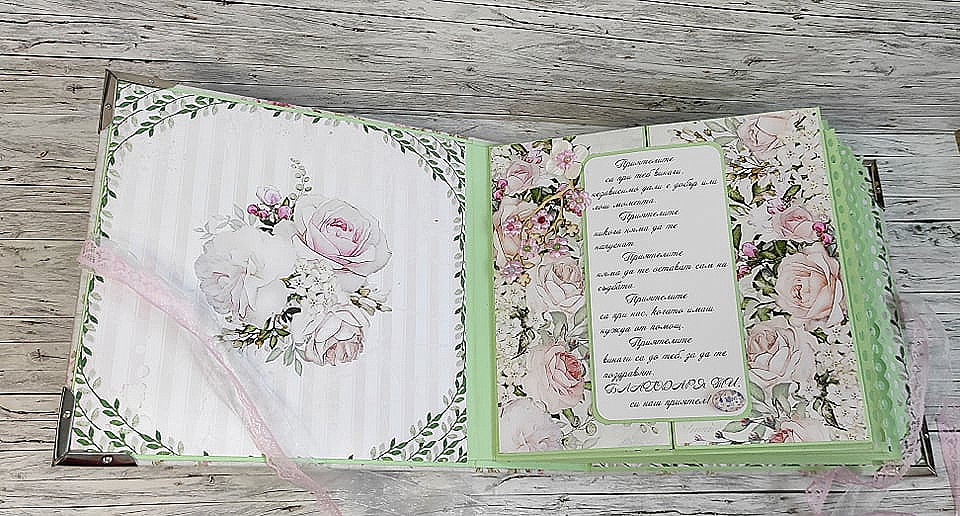 Приятелите
са при теб винаги,
независимо дали е добър или
лош момента.
Приятелите
никога няма да те
напуснат.
Приятелите
няма да те оставят сам на
съдбата.
Приятелите
са при нас, когато имаш
нужда от помощ.
Приятелите
винаги са до теб, за да те
поздравят.
БЛАГОДАРЯ ТИ,
си наш приятел!